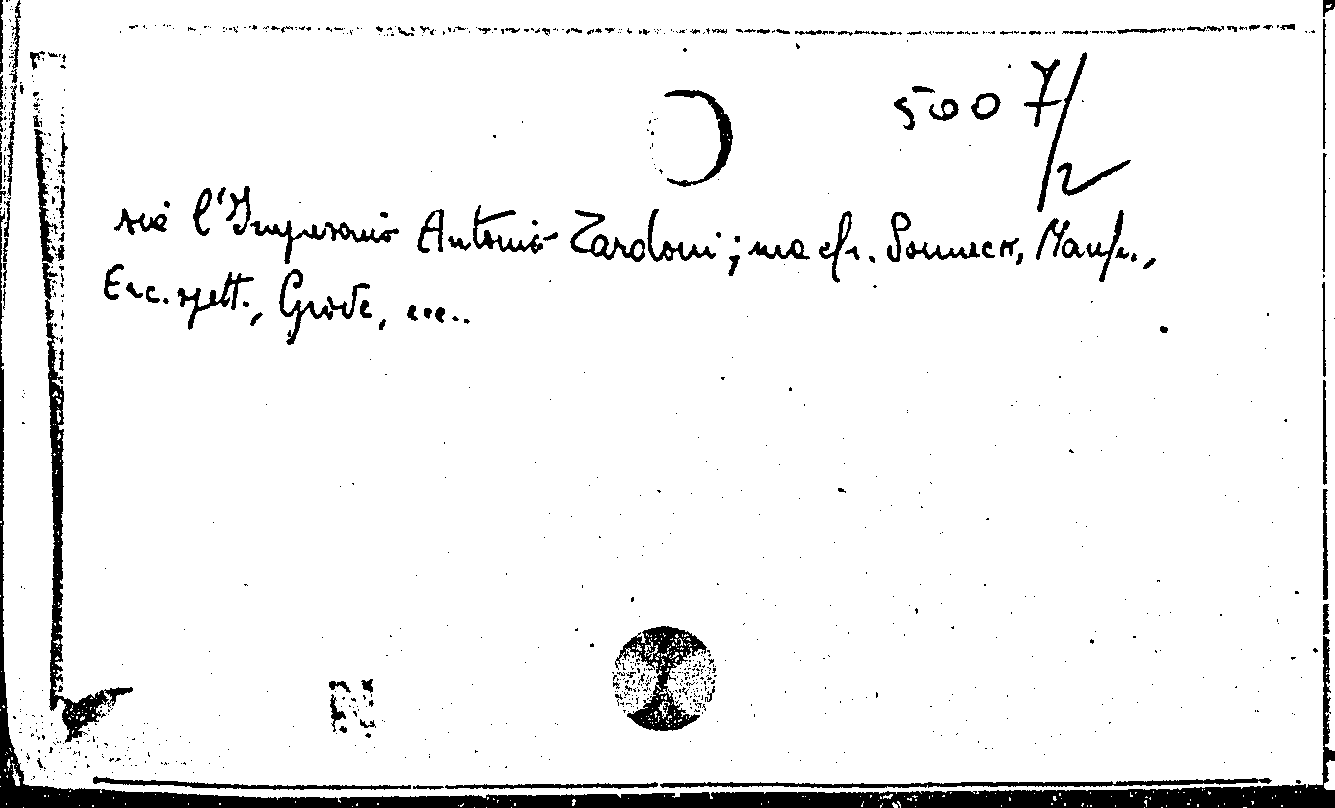 5007/2
sia l'Impresario Antonio Zardoni; ma cfr. Sonneck, Manf.,
Enc. spett., Grove, ecc..
N